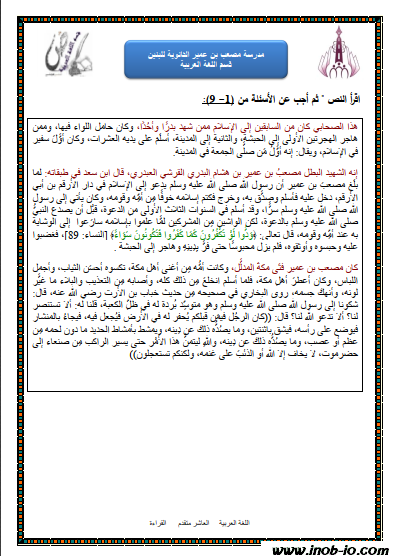 مدرسة مصعب بن عمير الثانوية للبنين
قسم اللغة العربية
اقرأ النص " ثم أجب عن الأسئلة من (1– 9):
هذا الصحابي كان من السابقين إلى الإسلام ممن شهد بدرًا وأُحُدًا، وكان حامل اللواء فيها، وممن
هاجر الهجرتين الأولى إلى الحبشة، والثانية إلى المدينة، أسلم على يديه العشرات، وكان أوَّل سفير
في الإسلام، ويقال: إنه أوَّل مَن صلَّى الجمعة في المدينة.
إنه الشهيد البطل مصعبُ بن عمير بن هشام البدري القرشي العبدري، قال ابن سعد في طبقاته: لما
بلغ مصعب بن عمير أن رسول الله صلى الله عليه وسلم يدعو إلى الإسلام في دار الأرقم بن أبي
الأرقم، دخل عليه فأسلم وصدَّق به، وخرج فكتم إسلامه خوفًا من أمِّه وقومه، وكان يأتي إلى رسول
الله صلى الله عليه وسلم سرًّا، وقد أسلم في السنوات الثلاث الأولى من الدعوة، قبْل أن يصدع النبيُّ
صلى الله عليه وسلم بالدعوة، لكن الواشين مِن المشركين لمَّا علموا بإسلامه سارَعوا إلى الوشاية
به عند أمِّه وقومه، قال تعالى: ﴿وَدُّوا لَوْ تَكْفُرُونَ كَمَا كَفَرُوا فَتَكُونُونَ سَوَاءً﴾ [النساء: 89]، فغضبوا
عليه وحبسوه وأوثقوه، فلم يزل محبوسًا حتى فرَّ بدِينِه وهاجر إلى الحبشة .
كان مصعب بن عمير فتى مكة المدلَّل، وكانت أمُّه مِن أغنى أهل مكة، تكسوه أحسن الثياب، وأجمل
اللباس، وكان أعطرَ أهل مكة، فلما أسلم انخلع مِن ذلك كله، وأصابه مِن التعذيب والبلاء ما غيَّر
لونه، وأنهك جسمه، روى البخاري في صحيحه مِن حديث خباب بن الأرت رضي الله عنه، قال:
شكونا إلى رسول الله صلى الله عليه وسلم وهو متوسِّد بُردة له في ظلِّ الكعبة، قلنا له: ألا تستنصر
لنا؟ ألا تدعو الله لنا؟ قال: ((كان الرجُل فيمَن قبلكم يُحفر له في الأرض فيُجعل فيه، فيجاءُ بالمنشار
فيوضع على رأسه، فيشق باثنتين، وما يصدُّه ذلك عن دِينه، ويمشط بأمشاط الحديد ما دون لحمه مِن
عظم أو عصب، وما يصدُّه ذلك عن دِينه، واللهِ ليتمنَّ هذا الأمر حتى يسير الراكب مِن صنعاء إلى
حضرموت، لا يخاف إلا الله أو الذئبَ على غنمه، ولكنَّكم تستعجلون))
اللغة العربية العاشر متقدم القراءة
www.jnob-jo.com